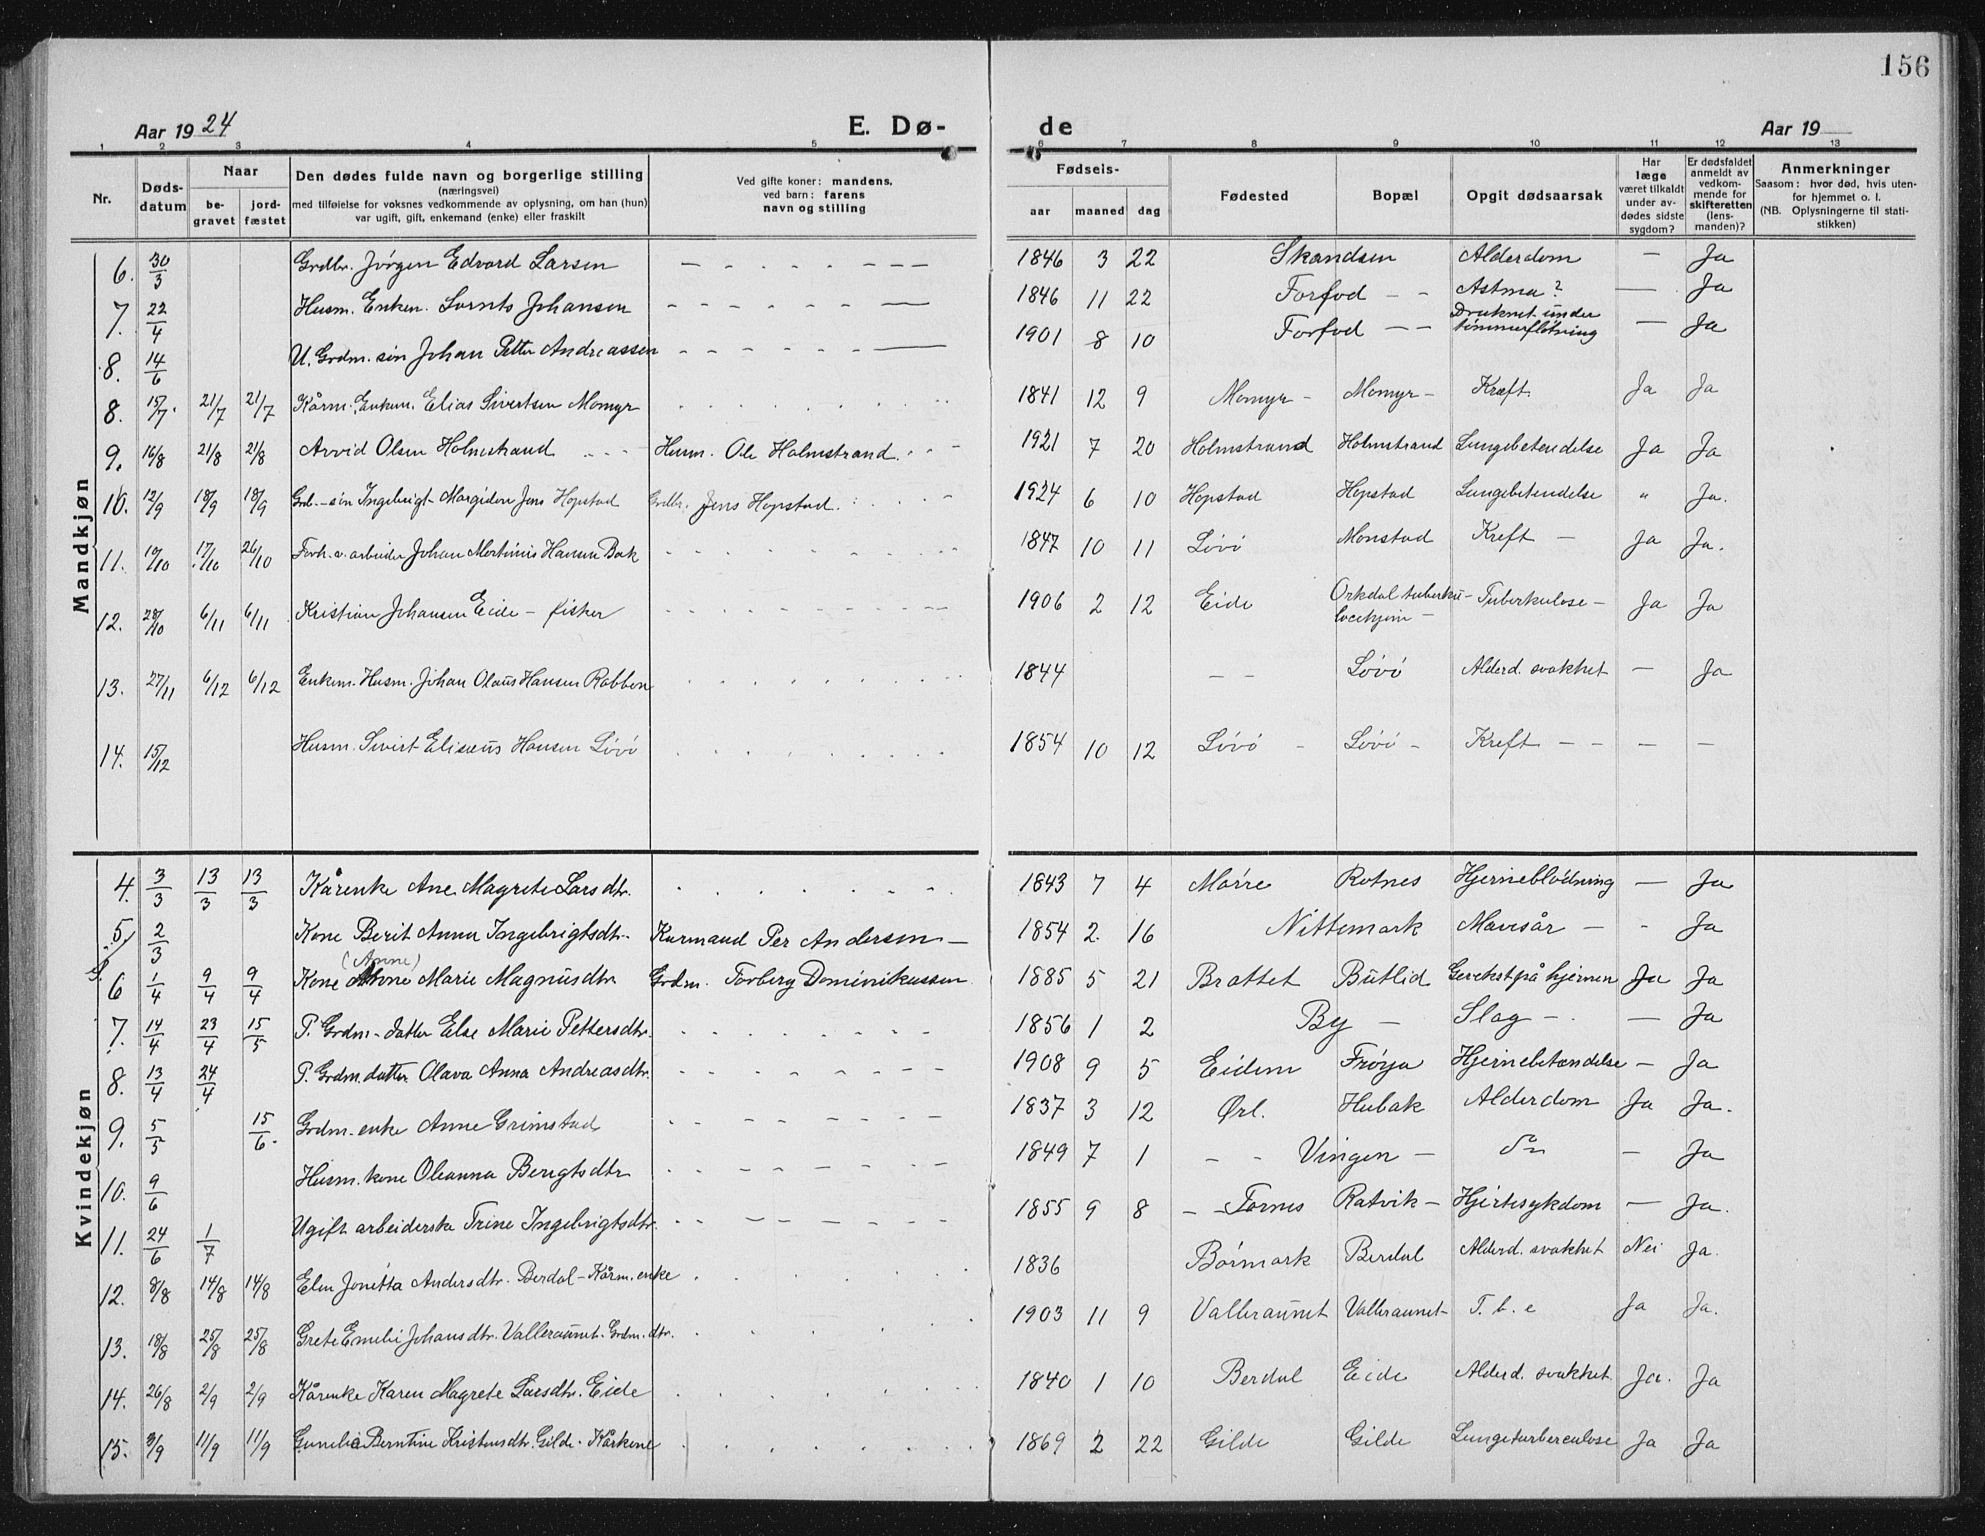 156
Aar 1924 E. Dø- de Aar 19
1 2 3 4 5 6 7 8 9 10 11 12 13
Nr. Døds-datum Naar be-gravet jord-fæstet Den dødes fulde navn og borgerlige stilling (næringsvei) med tilføielse for voksnes vedkommende av oplysning, om han (hun) var ugift, gift, enkemand (enke) eller fraskilt Ved gifte koner: mandens, ved barn: farens navn og stilling Fødsels- aar maaned dag Fødested Bopæl Opgit dødsaarsak Har læge været tilkaldt under av-dødes sidste sygdom? Er dødsfaldet anmeldt av vedkom-mende for skifteretten (lens-manden)? Anmerkninger Saasom: hvor død, hvis uten-for hjemmet o. l. (NB. Oplysningerne til stati-stikken)
Mandkjøn
6. 30/3 Grdbr. Jørgen Edvard Larsen 1846 3 22 Skandsen Alderdom — Ja
7. 22/4 Husm. Enkem. Lornts Johansen 1846 11 22 Forfod Astma? — Ja
8. 14/6 U. Grdm. søn Johan Petter Andreassen 1901 8 10 Forfod Druknet under tømmerfløtning — Ja
8. 15/7 21/7 21/7 Kårm. Enkem. Elias Sivertsen Momyr 1841 12 9 Momyr Momyr Kræft Ja Ja
9. 16/8 21/8 21/8 Arvid Olsen Holmstrand Husm. Ole Holmstrand. 1921 7 20 Holmstrand Holmstrand Lungebetendelse Ja Ja
10. 12/9 18/9 18/9 Grb.-søn Ingebrigt Margidon Jens Hopstad Grdbr. Jens Hopstad. 1924 6 10 Hopstad Hopstad Lungebetendelse " Ja.
11. 10/10 17/10 26/10 Forh.v. arbeider Johan Mortinus Hansen Bak 1847 10 11 Løvø Monstad Kreft — Ja Ja.
12. 28/10 6/11 6/11 Kristian Johansen Eide - fisker 1906 2 12 Eide Orkdal tuberku-losehjem Tuberkulose Ja Ja
13. 27/11 6/12 6/12 Enkem. Husm. Johan Olaus Hansen Robben 1844 — — Løvø Alderd. svakhet — Ja
14. 15/12 Husm. Sivert Eliseus Hansen Løvø 1854 10 12 Løvø Løvø Kreft — — —
Kvindekjøn
4. 3/3 13/3 13/3 Kårenke Ane Magrete Larsdtr. 1843 7 4 Mørre Rotnes Hjerneblødning — Ja
5 2/3 Kone Berit Anna Ingebrigtsdtr. Kurmand Per Andersen 1854 2. 16 Nittemark Mavesår — Ja
(Anne)
6 1/4 9/4 9/4 Kone Anne Marie Magnusdtr. Grdm. Torberg Dominikussen 1885 5 21 Brattet Butlid Gerekst på hjernen Ja Ja
7. 14/4 23/4 15/5 P. Grdm-datter Else Marie Pettersdtr. 1856 1 2 By Slag — Ja
8. 13/4 24/4 P. Grdm. datter Olava Anna Andreasdtr. 1908 9 5 Eidem Frøya Hjernebetændelse — Ja
9. 5/5 15/6. Grdm. enke Anne Grimstad 1837 3 12 Ørl. Hubak Alderdom Ja Ja.
10. 9/6 Husm. kone Oleanna Bengtsdtr 1849 7 1 — Vingen — do — Ja
11. 24/6 1/7 Ugift arbeiderske Trine Ingebrigtsdtr. 1855 9 8 — Fornes Ratvik Hjertesykdom — Ja.
12. 8/8 14/8 14/8 Elen Jonetta Andersdtr. Berdal - Kårm. enke 1836 Børmark Berdal Alderd. svakhet Nei Ja.
13. 18/8 25/8 25/8 Grete Emelie Johansdtr. Valleraunet. Grdm. dtr. 1903 11 9 Valleraunet Valleraunet T. b. c Ja Ja.
14. 26/8 2/9 2/9 Kårenke Karen Magrete Larsdtr. Eide 1840 1 10 Berdal Eide Alderd. svakhet. Ja. Ja
15. 3/9 11/9 11/9 Gunelia Berntine Kristensdtr. Gilde - Kårkone 1869 2 22 Gilde Gilde Lungeturberculose Ja Ja